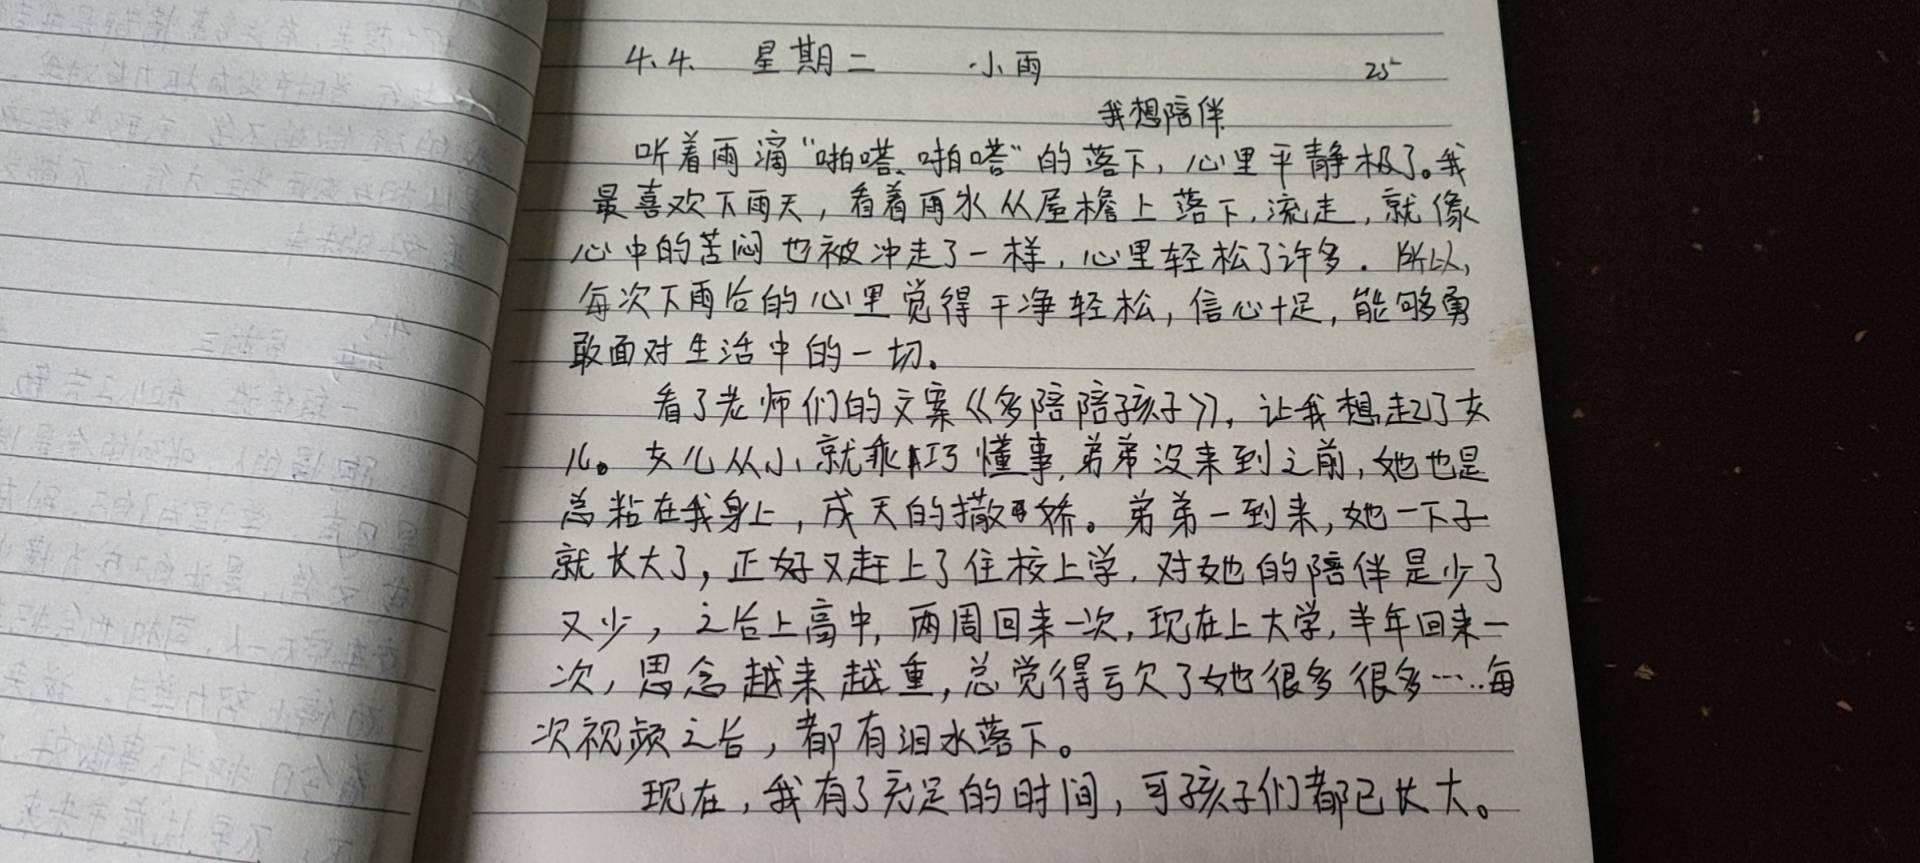 4.4. 星期二 小雨 25
我想陪伴
听着雨滴“啪嗒、啪嗒”的落下，心里平静极了。我
最喜欢下雨天，看着雨水从屋檐上落下，流走，就像
心中的苦闷也被冲走了一样，心里轻松了许多。所以，
每次下雨后的心里觉得干净轻松，信心十足，能够勇
敢面对生活中的一切。
看了老师们的文案《多陪陪孩子》，让我想起了女
儿。女儿从小就乖巧懂事，弟弟没来到之前，她也是
总粘在我身上，成天的撒娇。弟弟一到来，她一下子
就长大了，正好又赶上了住校上学，对她的陪伴是少了
又少，之后上高中，两周回来一次，现在上大学，半年回来一
次，思念越来越重，总觉得亏欠了她很多很多……每
次视频之后，都有泪水落下。
现在，我有了充足的时间，可孩子们都已长大。